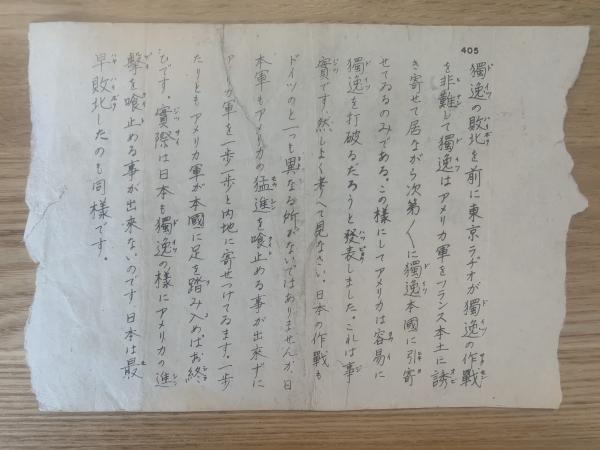 405
獨逸の敗北を前に東京ラヂオが獨逸の作戰
を非難して獨逸はアメリカ軍をフランス本土に誘
き寄せて居ながら次第〱に獨逸本國に引寄
せてゐるのみである。この様にしてアメリカは容易に
獨逸を打破るだろうと發表しました。これは事
實です。然しよく考へて見なさい。日本の作戰も
ドイツのと一つも異なる所がないではありませんか。日
本軍もアメリカの猛進を喰止める事が出來ずに
アメリカ軍を一歩一歩と内地に寄せつけてゐます。一歩
たりともアメリカ軍が本國に足を踏み入めばお終
ひです。實際は日本も獨逸の様にアメリカの進
擊を喰止める事が出來ないのです。日本は最
早敗北したのも同様です。